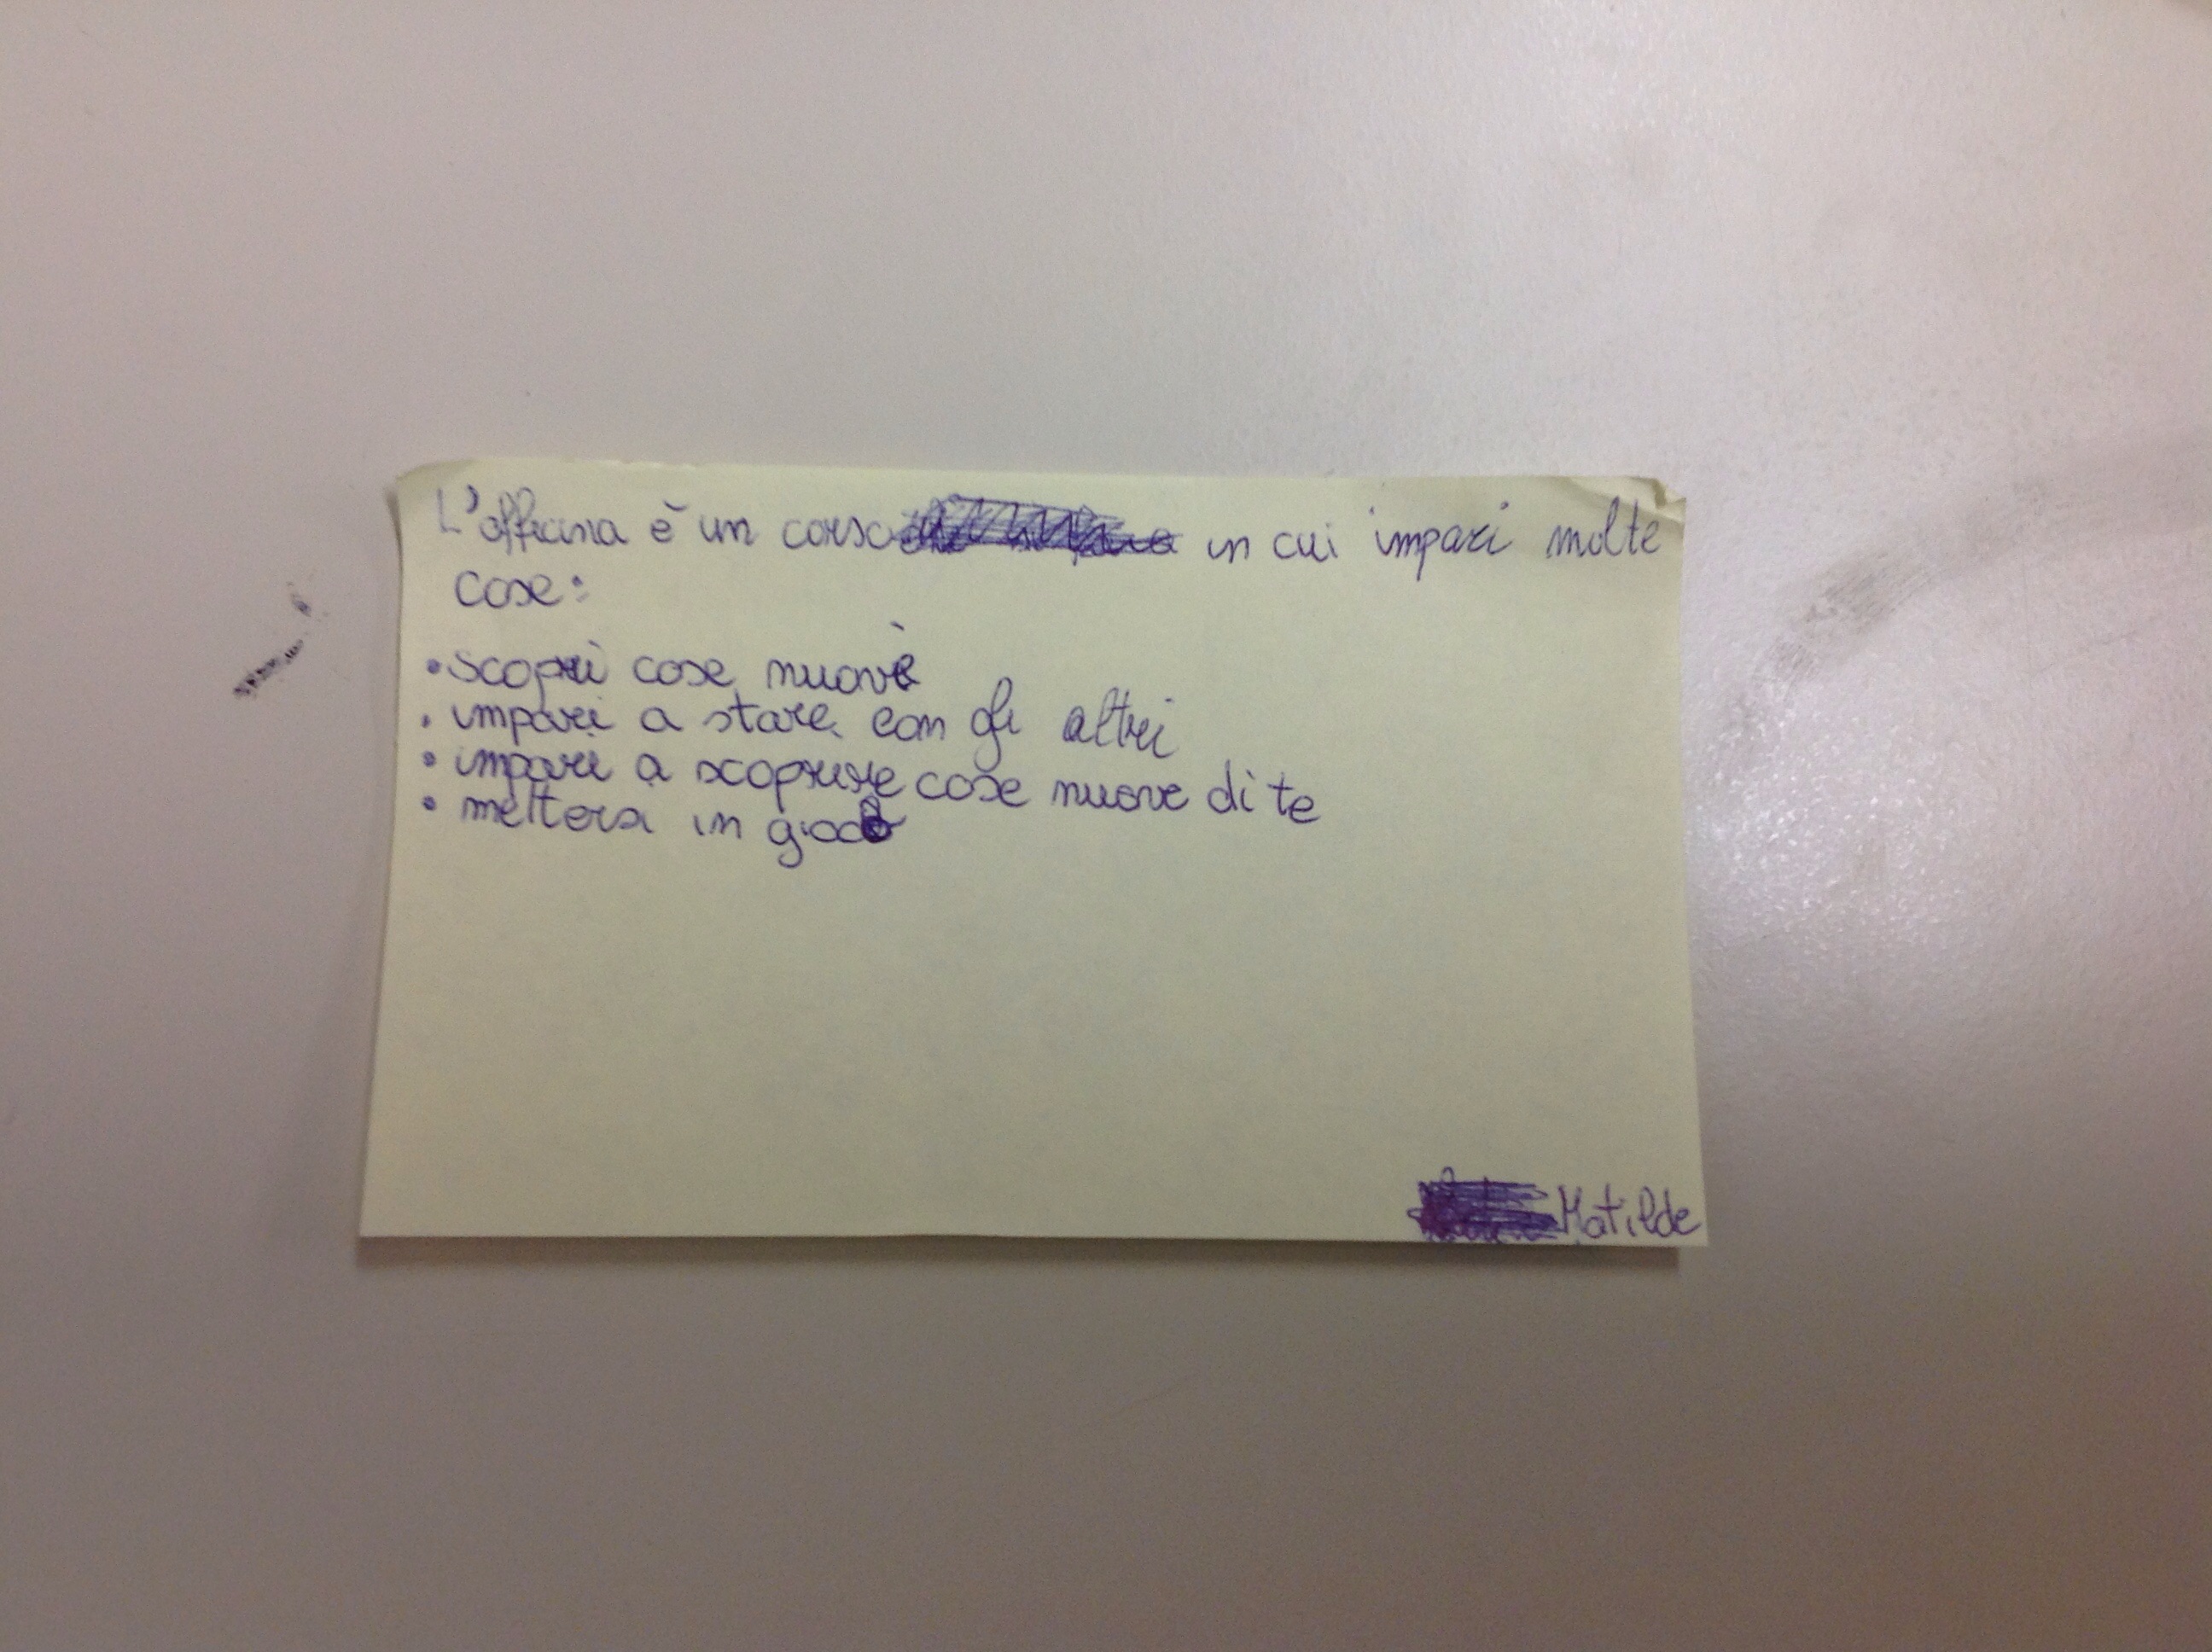 L'officina è un corso in cui impari molte
cose:
• scopri cose nuove
• impari a stare con gli altri
• impari a scoprire cose nuove di te
• mettersi in gioco
Matilde